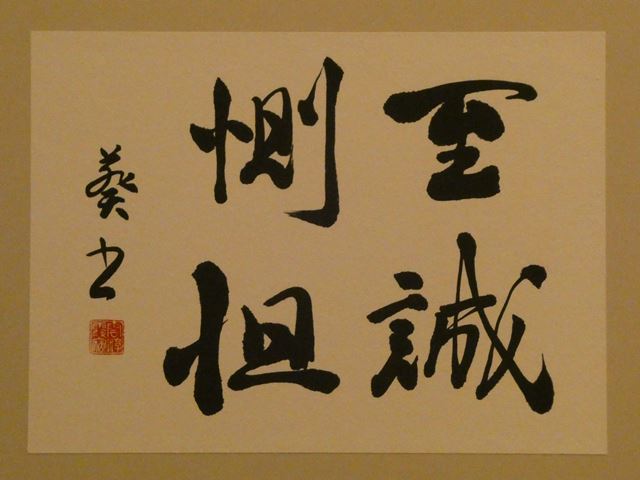 至誠
惻怛
葵書